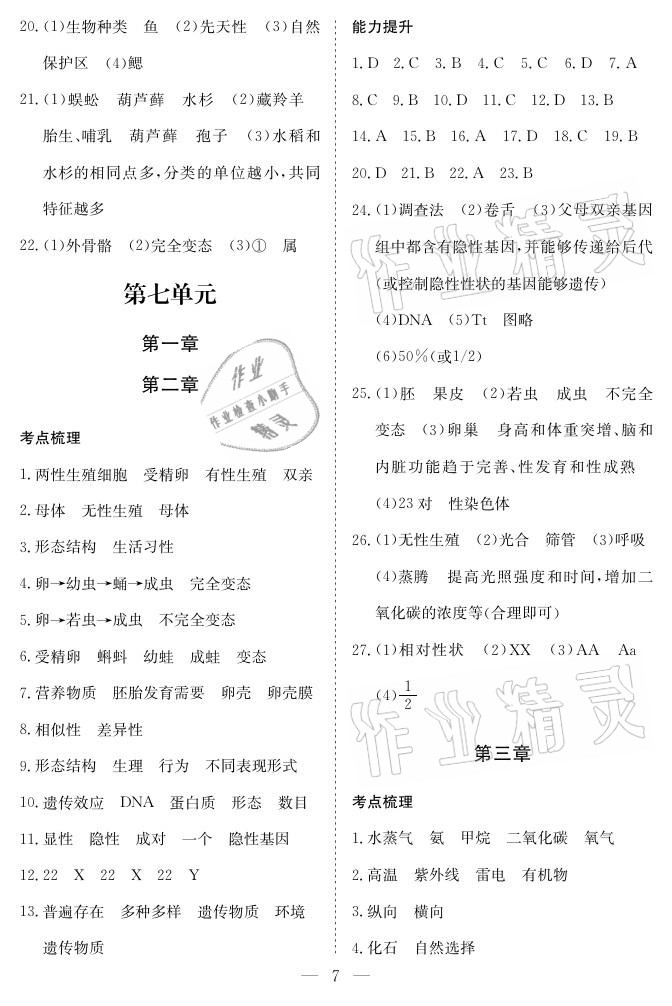 20.(1)生物种类　鱼　(2)先天性　(3)自然
保护区　(4)鳃
21.(1)蜈蚣　葫芦藓　水杉　(2)藏羚羊
胎生、哺乳　葫芦藓　孢子　(3)水稻和
水杉的相同点多,分类的单位越小,共同
特征越多
22.(1)外骨骼　(2)完全变态　(3)①　属
第七单元
第一章
第二章
考点梳理
1.两性生殖细胞　受精卵　有性生殖　双亲
2.母体　无性生殖　母体
3.形态结构　生活习性
4.卵→幼虫→蛹→成虫　完全变态
5.卵→若虫→成虫　不完全变态
6.受精卵　蝌蚪　幼蛙　成蛙　变态
7.营养物质　胚胎发育需要　卵壳　卵壳膜
8.相似性　差异性
9.形态结构　生理　行为　不同表现形式
10.遗传效应　DNA　蛋白质　形态　数目
11.显性　隐性　成对　一个　隐性基因
12.22　X　22　X　22　Y
13.普遍存在　多种多样　遗传物质　环境
遗传物质
能力提升
1.D　2.C　3.B　4.C　5.C　6.D　7.A
8.C　9.B　10.D　11.C　12.D　13.B
14.A　15.B　16.A　17.D　18.C　19.B
20.D　21.B　22.A　23.B
24.(1)调查法　(2)卷舌　(3)父母双亲基因
组中都含有隐性基因,并能够传递给后代
(或控制隐性性状的基因能够遗传)
(4)DNA　(5)Tt　图略
(6)50%(或1/2)
25.(1)胚　果皮　(2)若虫　成虫　不完全
变态　(3)卵巢　身高和体重突增、脑和
内脏功能趋于完善、性发育和性成熟
(4)23对　性染色体
26.(1)无性生殖　(2)光合　筛管　(3)呼吸
(4)蒸腾　提高光照强度和时间,增加二
氧化碳的浓度等(合理即可)
27.(1)相对性状　(2)XX　(3)AA　Aa
(4)1/2
第三章
考点梳理
1.水蒸气　氨　甲烷　二氧化碳　氧气
2.高温　紫外线　雷电　有机物
3.纵向　横向
4.化石　自然选择
— 7 —
作业
作业检查小助手
精灵
作业精灵
作业精灵